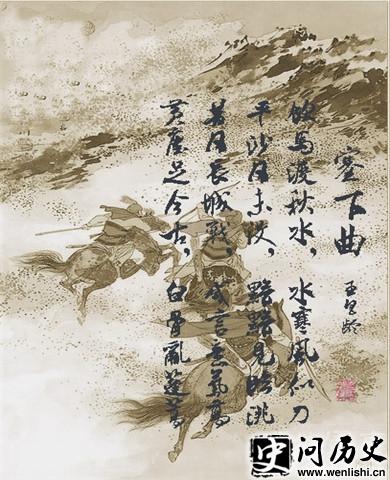 塞下曲
王昌齡
飲馬渡秋水，水寒風似刀
平沙日未没，黯黯見臨洮
昔日長城戰，咸言意氣高
黄塵足今古，白骨亂蓬蒿
史问历史
www.wenlishi.cn